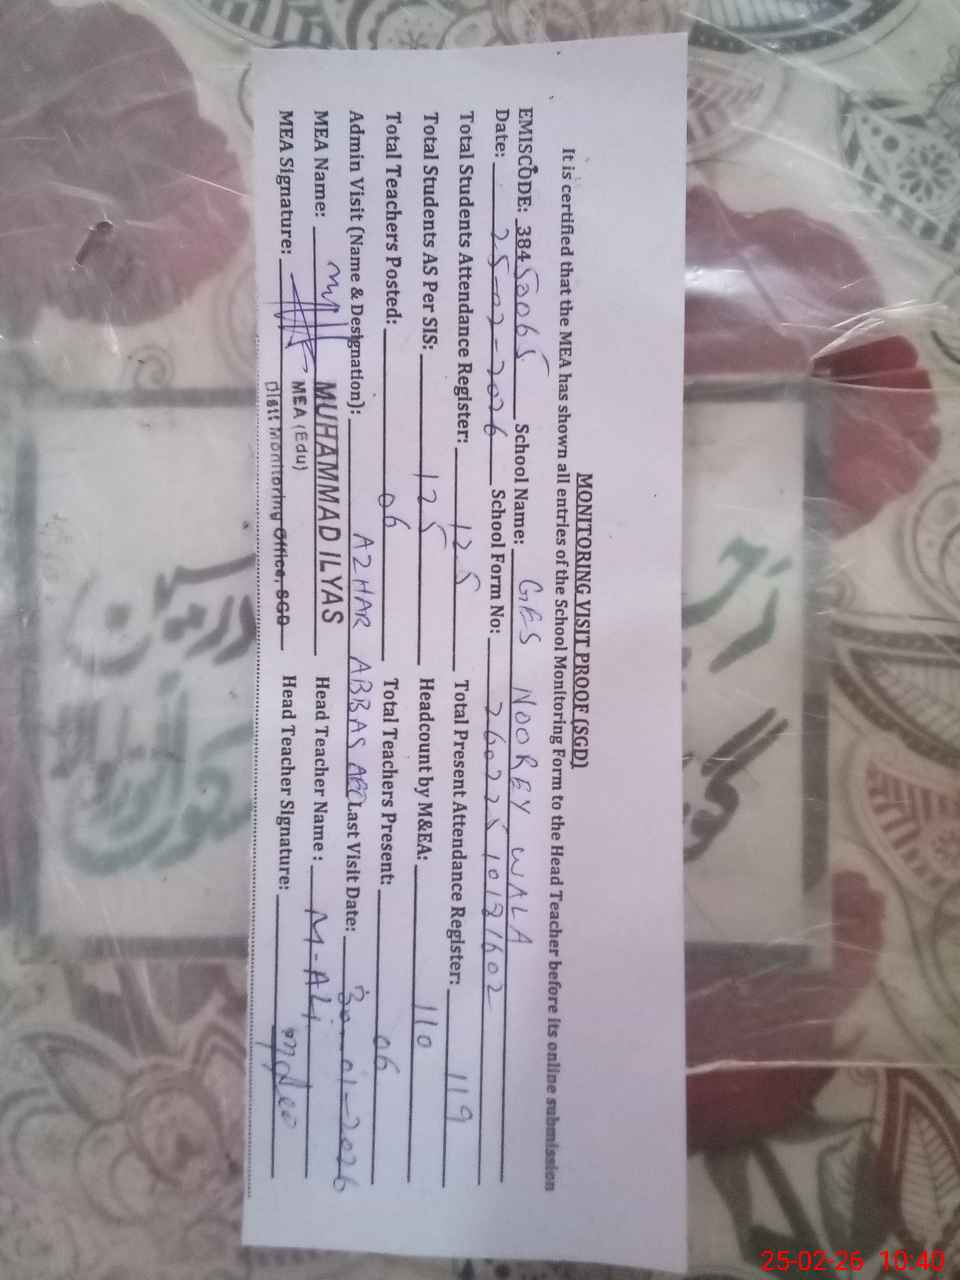 MONITORING VISIT PROOF (SGD)
It is certified that the MEA has shown all entries of the School Monitoring Form to the Head Teacher before its online submission
EMISCODE: 38450065 School Name: GES NOOREY WALA
Date: 25-02-2026 School Form No:
Total Students Attendance Register: 125 Total Present Attendance Register: 119
Total Students AS Per SIS: 125 Headcount by M&EA: 110
Total Teachers Posted: 06 Total Teachers Present: 06
Admin Visit (Name & Designation): AZHAR ABBAS AEO Last Visit Date: 30-01-2026
MEA Name: MUHAMMAD ILYAS Head Teacher Name: M-ALI
MEA (Edu)
MEA Signature: Distt Monitoring Office, SGD Head Teacher Signature:
25-02-26 10:40